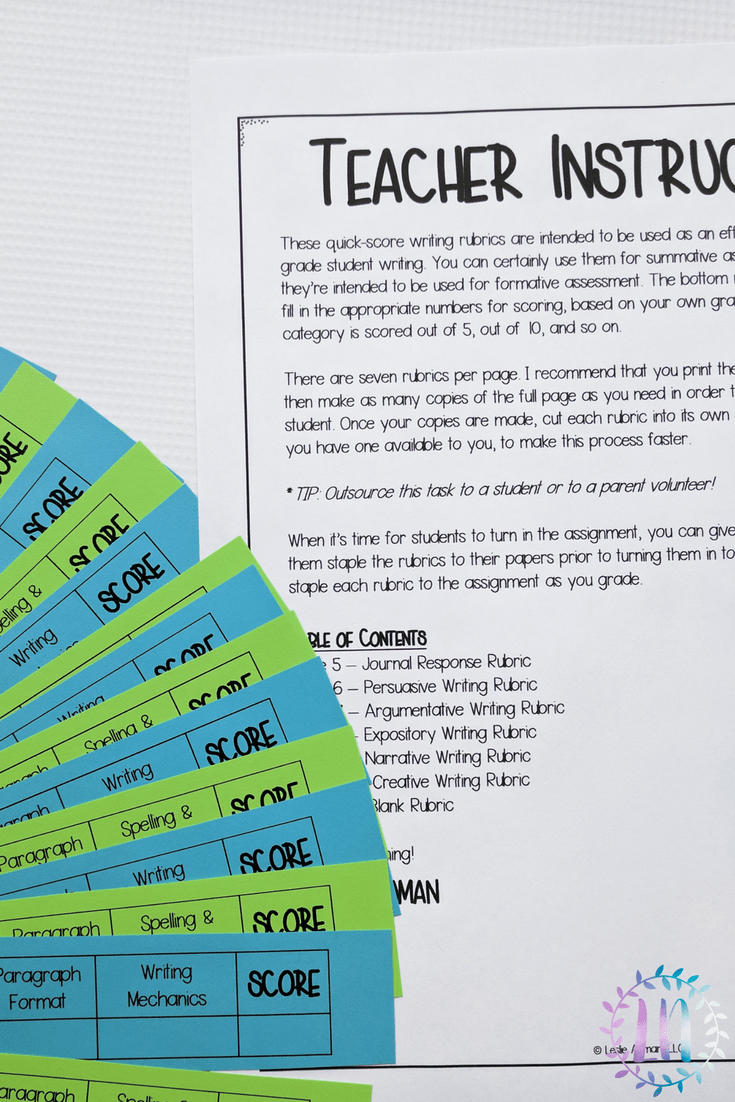 TEACHER INSTRUC
These quick-score writing rubrics are intended to be used as an eff
grade student writing. You can certainly use them for summative as
they're intended to be used for formative assessment. The bottom
fill in the appropriate numbers for scoring, based on your own gra
category is scored out of 5, out of 10, and so on.
There are seven rubrics per page. I recommend that you print the
then make as many copies of the full page as you need in order t
student. Once your copies are made, cut each rubric into its own
you have one available to you, to make this process faster.
* TIP: Outsource this task to a student or to a parent volunteer!
When it's time for students to turn in the assignment, you can give
them staple the rubrics to their papers prior to turning them in to
staple each rubric to the assignment as you grade.
BLE OF CONTENTS
5 – Journal Response Rubric
6 – Persuasive Writing Rubric
– Argumentative Writing Rubric
- Expository Writing Rubric
Narrative Writing Rubric
Creative Writing Rubric
Blank Rubric
ing!
MAN
ORE
SCORE
SCORE
elling &
SCORE
Writing
SCORE
Writing
SCORE
Spelling &
SCORE
Writing
SCORE
Paragraph
Spelling &
SCORE
Writing
SCORE
Paragraph
Spelling &
SCORE
Paragraph Format
Writing Mechanics
SCORE
aragraph
Spelling &
LN